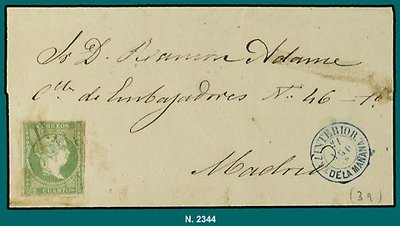 Sr D. Ramon Adame
Clle de Embajadores No. 46-1o
Madrid
CORREOS
2 CUARTOS
INTERIOR
DE LA MAÑANA
(39)
N. 2344